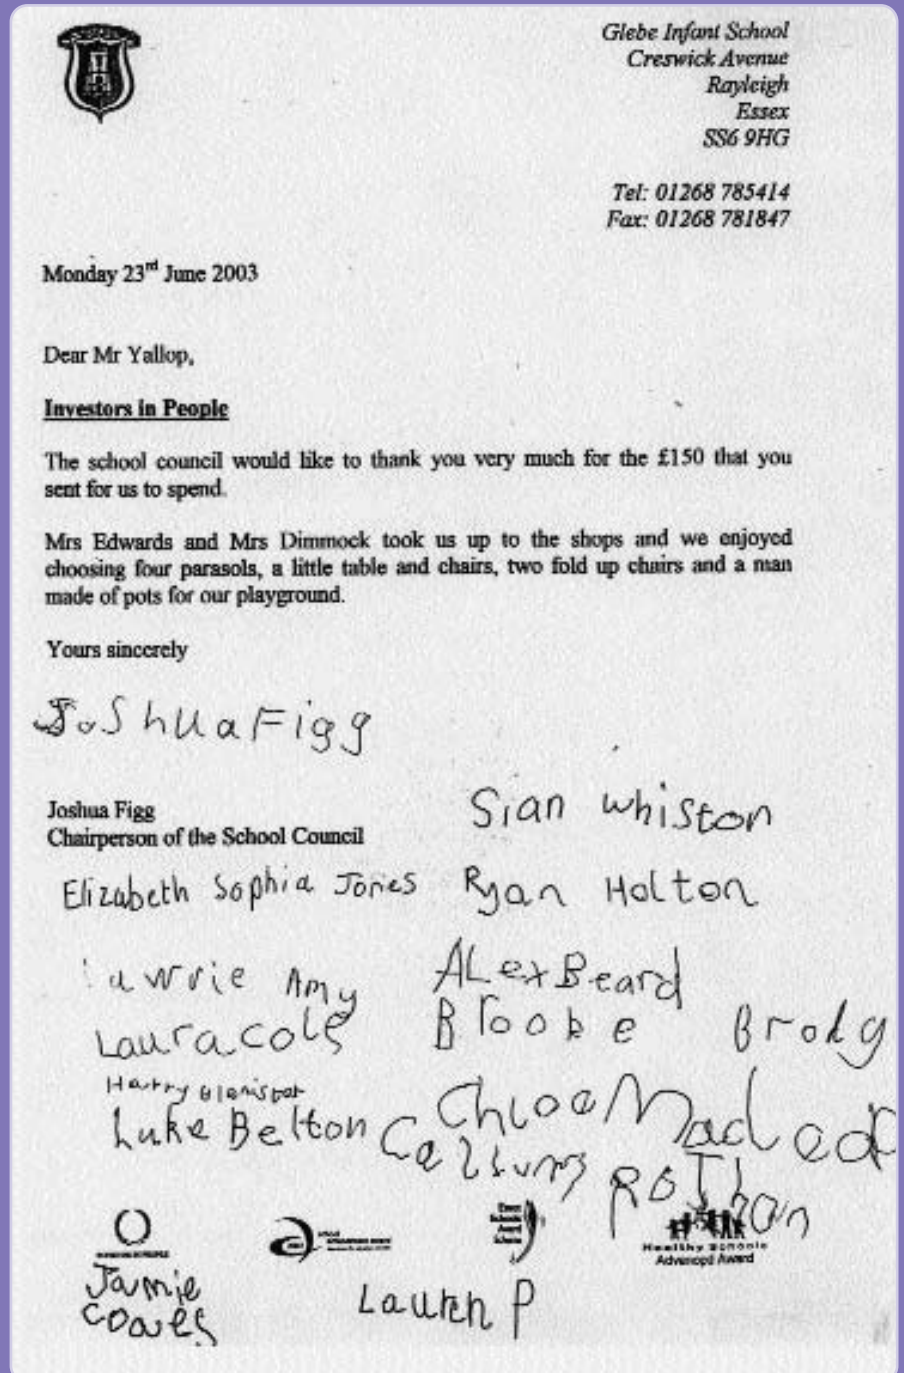 Glebe Infant School
Creswick Avenue
Rayleigh
Essex
SS6 9HG
Tel: 01268 785414
Fax: 01268 781847
Monday 23rd June 2003
Dear Mr Yallop,
Investors in People
The school council would like to thank you very much for the £150 that you
sent for us to spend.
Mrs Edwards and Mrs Dimmock took us up to the shops and we enjoyed
choosing four parasols, a little table and chairs, two fold up chairs and a man
made of pots for our playground.
Yours sincerely
Joshua Figg
Joshua Figg
Chairperson of the School Council
Sian Whiston
Elizabeth Sophia Jones
Ryan Holton
Amy
Alex Beard
Laura Cole
Brooke Brody
Harry
Chloe
Luke Belton
Callum
Healthy Schools
Award
Jamie
Lauren P